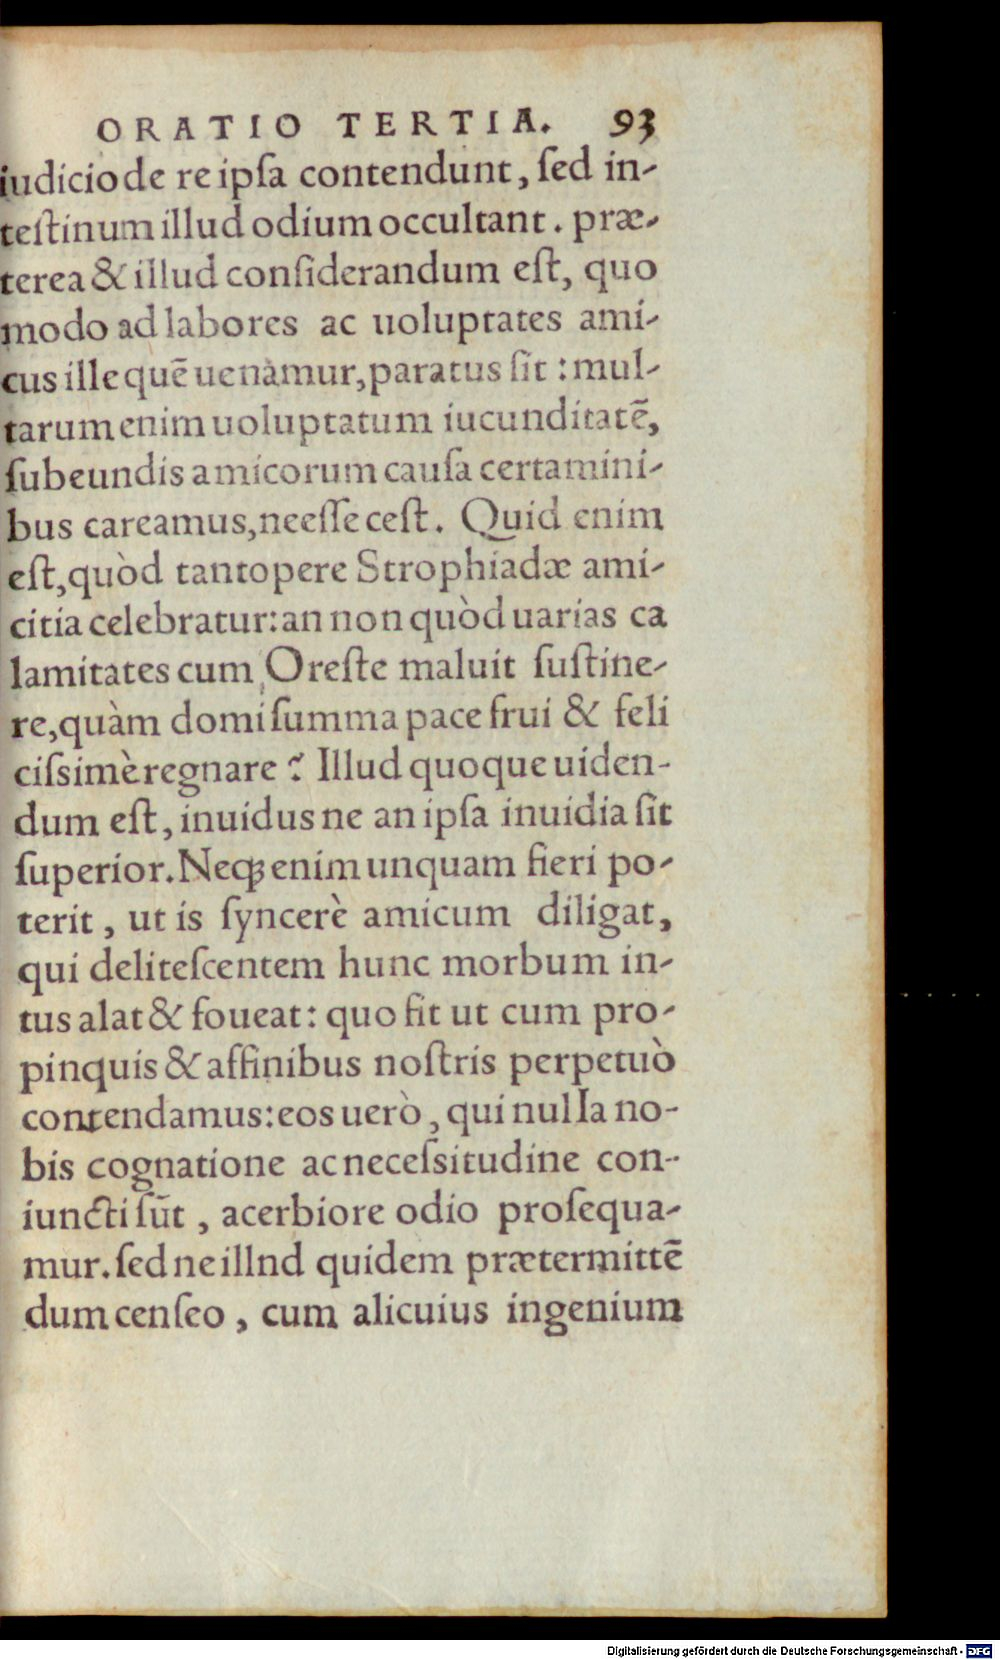 ORATIO TERTIA. 93
iudicio de re ipſa contendunt, ſed in-
teſtinum illud odium occultant. præ-
terea & illud conſiderandum eſt, quo
modo ad labores ac uoluptates ami-
cus ille quē uenamur, paratus ſit: mul-
tarum enim uoluptatum iucunditatē,
ſubeundis amicorum cauſa certamini-
bus careamus, neeſſe ceſt. Quid enim
eſt, quòd tantopere Strophiadæ ami-
citia celebratur: an non quòd uarias ca
lamitates cum Oreſte maluit ſuſtine-
re, quàm domi ſumma pace frui & feli
ciſsimè regnare? Illud quoque uiden-
dum eſt, inuidus ne an ipſa inuidia ſit
ſuperior. Neqꝫ enim unquam fieri po-
terit, ut is ſyncerè amicum diligat,
qui deliteſcentem hunc morbum in-
tus alat & foueat: quo fit ut cum pro-
pinquis & affinibus noſtris perpetuò
contendamus: eos uerò, qui nulla no-
bis cognatione ac neceſsitudine con-
iuncti ſūt, acerbiore odio proſequa-
mur. ſed ne illnd quidem prætermittē
dum cenſeo, cum alicuius ingenium
Digitalisierung gefördert durch die Deutsche Forschungsgemeinschaft - DFG